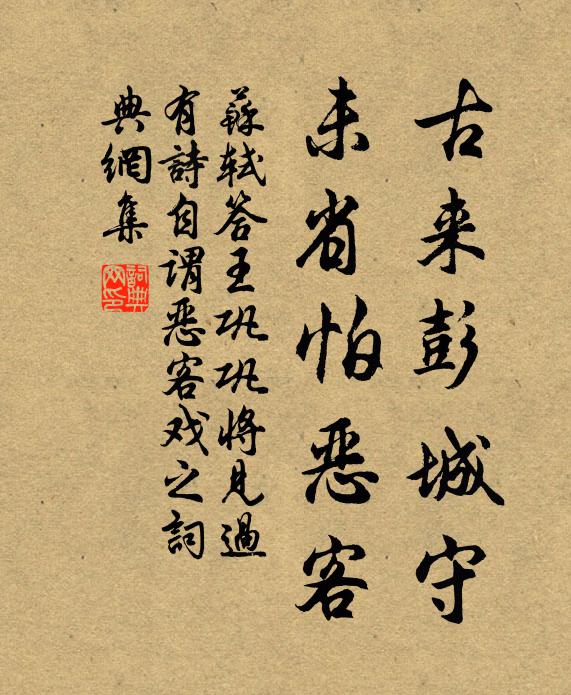 古来彭城守
未省怕恶客
蘇轼答王巩巩将见過
有詩自谓恶客戏之詞
典網集
詞典
网印